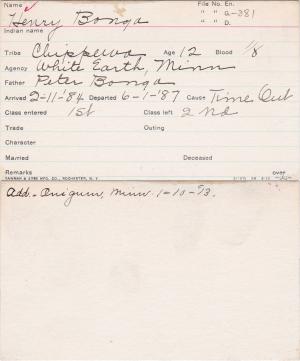 Name File No. En.
Henry Bonga " " a-381
Indian name " " D.
Tribe Chippewa Age 12 Blood 1/8
Agency White Earth, Minn
Father Peter Bonga
Arrived 2-11-'84 Departed 6-1-'87 Cause Time Out
Class entered 1st Class left 2nd
Trade Outing
Character
Married Deceased
Remarks over
YAWMAN & ERBE MFG. CO., ROCHESTER, N. Y.
Add.- Onigum, Minn. 1-10-'13.